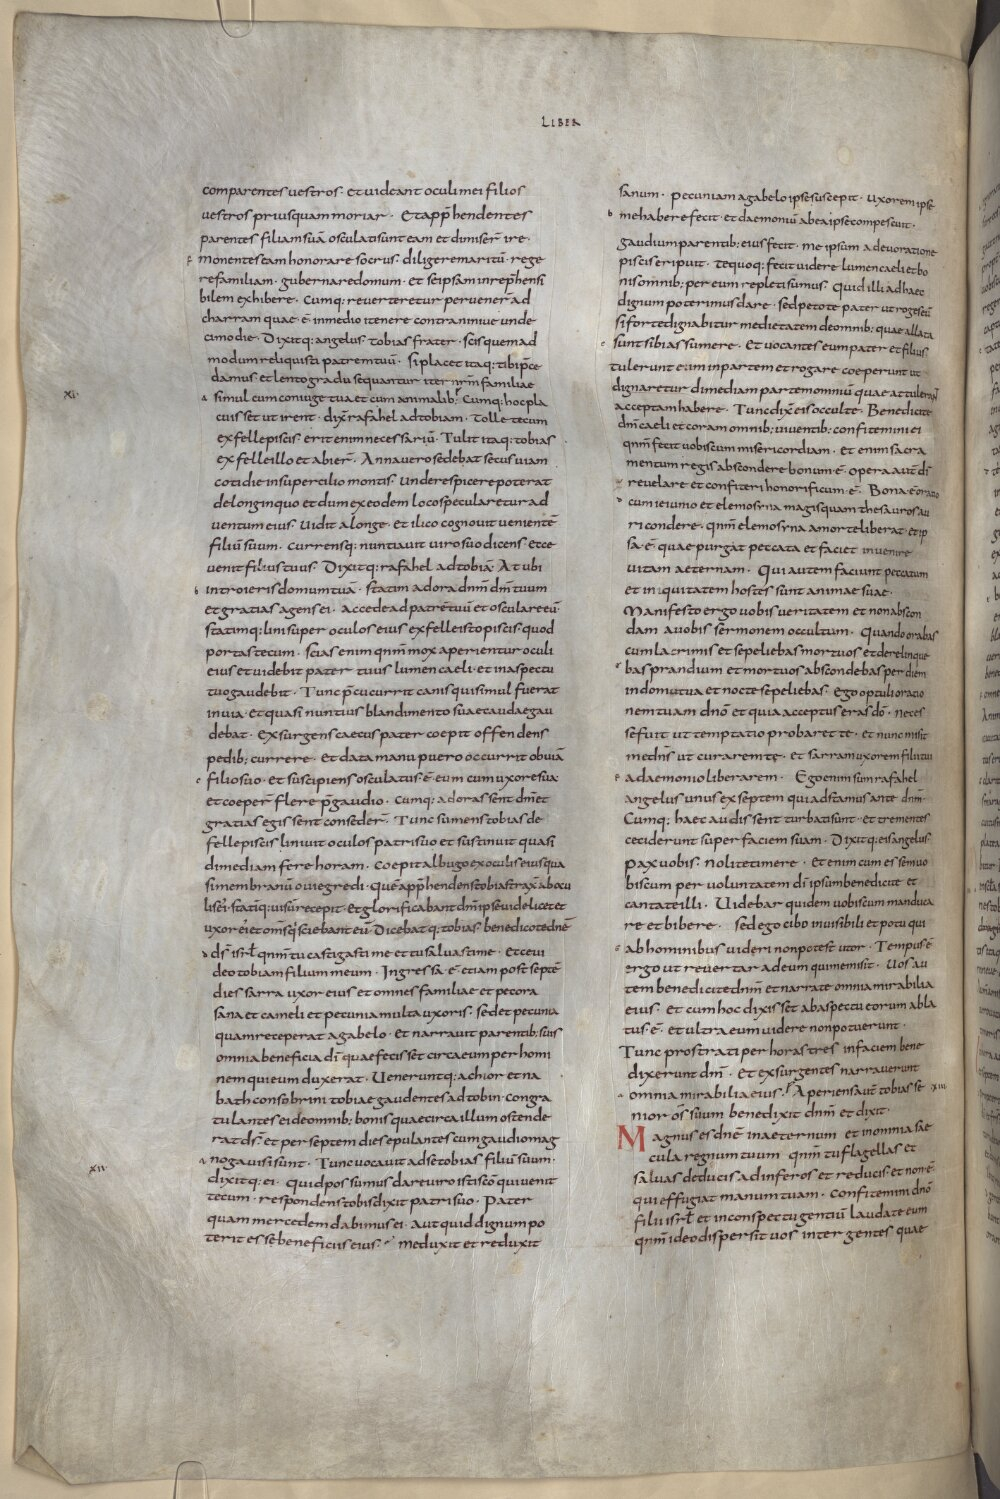 LIBER
comparentes vestros · et videant oculi mei filios
vestros priusquam moriar · Et app̄hendentes
parentes filiam suā osculati sunt eam et dimiser̄ ire ·
monentes eam honorare socrus · diligere maritū · rege
re familiam · gubernare domum · et seipsam inrep̄hensi
bilem exhibere · Cumq; reverteretur pervener̄ ad
charram quae ē in medio itenere contra ninive unde
cimo die · Dixitq; angelus · tobias frater · scis quemad
modum reliquisti patrem tuū · Si placet itaq; tibi p̄ce
damus · et lento gradu sequantur iter nr̄m familiae
xi·
a simul cum coniuge tua et cum animalib; Cumq; hoc pla
cuisset ut irent · dix̄ rafahel ad tobiam · Tolle tecum
ex felle piscis · erit enim necessariū · Tulit itaq; tobias
ex felle illo et abier̄ · Anna vero sedebat secus viam
cotidie in supercilio montis · Unde respicere poterat
de longinquo et dum ex eodem loco specularetur ad
ventum eius · Vidit a longe · et ilico cognovit venientē
filiū suum · Currensq; nuntiavit viro suo dicens · ecce
venit filius tuus · Dixitq; rafahel ad tobiā · At ubi
b introieris domum tuā · statim adora dn̄m dm̄ tuum
et gratias agens ei · accede ad patrē tuū et osculare eū ·
statimq; lini super oculos eius ex felle isto piscis quod
portas tecum · Scias enim qn̄m mox aperientur oculi
eius et videbit pater tuus lumen caeli · et in aspectu
tuo gaudebit · Tunc p̄cucurrit canis qui simul fuerat
in via · Et quasi nuntius blandimento suae caudae gau
debat · Exsurgens caecus pater coepit offendens
pedib; currere · Et data manu puero occurrit obviā
c filio suo · et suscipiens osculatus ē eum cum uxore sua
et coeper̄ flere p̄ gaudio · Cumq; adorassent dm̄ et
gratias egissent conseder̄ · Tunc sumens tobias de
felle piscis linivit oculos patris suo et sustinuit quasi
dimediam fere horam · Coepit albugo ex oculis eius qua
si membranū ovi egredi · Quē app̄hendens tobias trax̄ ab ocu
lis ei · statīq; visū recepit · Et glorificabant dm̄ ipse videlicet et
uxor ei et om̄s q̄ sciebant eū Dicebatq; tobias · benedico te dn̄e
ds̄ isrł qn̄m tu castigasti me et tu salvasti me · Et ecce vi
deo tobiam filium meum · Ingressa ē etiam post septē
dies sarra uxor eius et omnes familiae et pecora
sana et cameli et pecunia multa uxoris · sed et pecunia
quam receperat a gabelo · Et narravit parentib; suis
omnia beneficia dī quae fecisset circa eum per homi
nem qui eum duxerat · Veneruntq; achior et na
bath consobrini tobiae gaudentes ad tobin · congra
tulantes ei de omnib; bonis quae circa illum ostende
rat ds̄ · et per septem dies epulantes cum gaudio mag
xii·
a no gavisi sunt · Tunc vocavit ad se tobias filiū suum ·
dixitq; ei · quid possumus dare viro isti sc̄o qui venit
tecum · respondens tobis dixit patri suo · Pater
quam mercedem dabimus ei · Aut quid dignum po
terit esse beneficiis eius · Me duxit et reduxit
sanum · Pecuniam a gabelo ipse suscepit · uxorem ipse
b me habere fecit · et daemoniū ab ea ipse compescuit ·
gaudium parentib; eius fecit · me ipsum a devoratione
piscis eripuit · te quoq; fecit videre lumen caeli et bo
nis omnib; per eum repleti sumus · Quid illi ad haec
dignum poterimus dare · sed peto te pater ut roges eū
si forte dignabitur medietatem de omnib; quae allata
c sunt sibi assumere · Et vocantes eum pater et filius
tulerunt eum in partem et rogare coeperunt ut
dignaretur dimediam partem omniū quae attulerant
acceptam habere · Tunc dix̄ eis occulte · Benedicite
dm̄ caeli et coram omnib; viventib; confitemini ei
qn̄m fecit vobiscum misericordiam · et enim sacra
mentum regis abscondere bonum ē · opera aut̄ dī
revelare et confiteri honorificum ē · Bona ē oratio
cum ieiunio et elemosyna magis quam thesauros au
ri condere · qn̄m elemosyna a morte liberat et ip
sa ē quae purgat peccata et faciet invenire
vitam aeternam · Qui autem faciunt peccatum
et iniquitatem hostes sunt animae suae ·
Manifesto ergo vobis veritatem et non abscon
dam a vobis sermonem occultum · Quando orabas
cum lacrimis et sepeliebas mortuos et derelinque
bas prandium et mortuos abscondebas per diem
in domu tua et nocte sepeliebas · Ego optuli oratio
nem tuam dn̄o et quia acceptus eras dō · neces
se fuit ut temptatio probaret te · et nunc misit
me dn̄s ut curarem te · et sarram uxorem filii tui
e a daemonio liberarem · Ego enim sum rafahel
angelus unus ex septem qui adstamus ante dn̄m
Cumq; haec audissent turbati sunt · et trementes
ceciderunt super faciem suam · Dixitq; eis angelus ·
pax vobis · Nolite timere · Et enim cum essem vo
biscum per voluntatem dī ipsum benedicite et
cantate illi · Videbar quidem vobiscum manduca
re et bibere · sed ego cibo invisibili et potu qui
ab hominibus videri non potest utor · Tempus ē
ergo ut revertar ad eum qui me misit · Vos au
tem benedicite dn̄m et narrate omnia mirabilia
eius · Et cum hoc dixisset ab aspectu eorum abla
tus ē · et ultra eum videre non potuerunt ·
Tunc prostrati per horas tres in faciem bene
dixerunt dm̄ · Et exsurgentes narraverunt
omnia mirabilia eius · Aperiens aut̄ tobias se xiii·
nior os̄ suum benedixit dn̄m et dixit ·
Magnus es dn̄e in aeternum et in omnia sae
cula regnum tuum · qn̄m tu flagellas et
salvas deducis ad inferos et reducis · et non ē
qui effugiat manum tuam · Confitemini dn̄o
filii isrł et in conspectu gentiū laudate eum
qn̄m ideo dispersit vos inter gentes quae